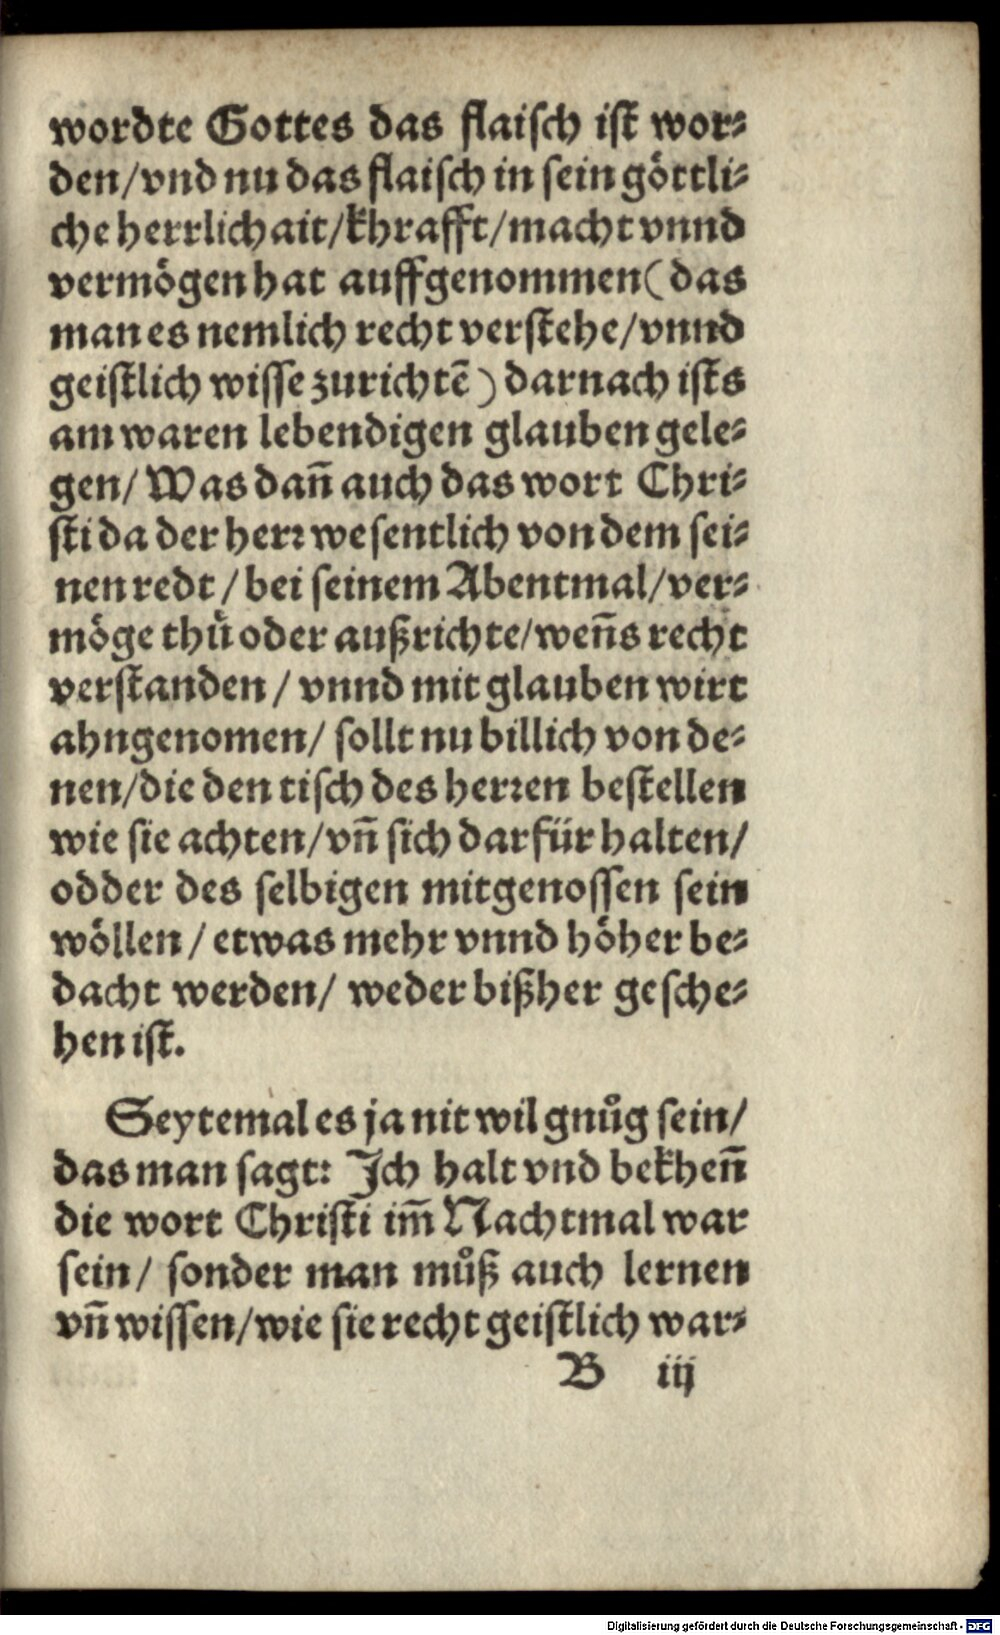 wordte Gottes das flaisch ist wor⸗
den/vnd nu das flaisch in sein göttli⸗
che herrlichait/khrafft/macht vnnd
vermögen hat auffgenommen(das
man es nemlich recht verstehe/vnnd
geistlich wisse zurichtē) darnach ists
am waren lebendigen glauben gele⸗
gen/ Was dañ auch das wort Chri⸗
sti da der herꝛ wesentlich von dem sei⸗
nen redt / bei seinem Abentmal/ver⸗
möge thů oder außrichte/weñs recht
verstanden / vnnd mit glauben wirt
ahngenomen/ sollt nu billich von de⸗
nen/die den tisch des herꝛen bestellen
wie sie achten/vñ sich darfür halten/
odder des selbigen mitgenossen sein
wöllen / etwas mehr vnnd höher be⸗
dacht werden/ weder bißher gesche⸗
hen ist.
Seytemal es ja nit wil gnůg sein/
das man sagt: Ich halt vnd bekheñ
die wort Christi im̃ Nachtmal war
sein/ sonder man můß auch lernen
vñ wissen/wie sie recht geistlich war⸗
B iij
Digitalisierung gefördert durch die Deutsche Forschungsgemeinschaft - DFG